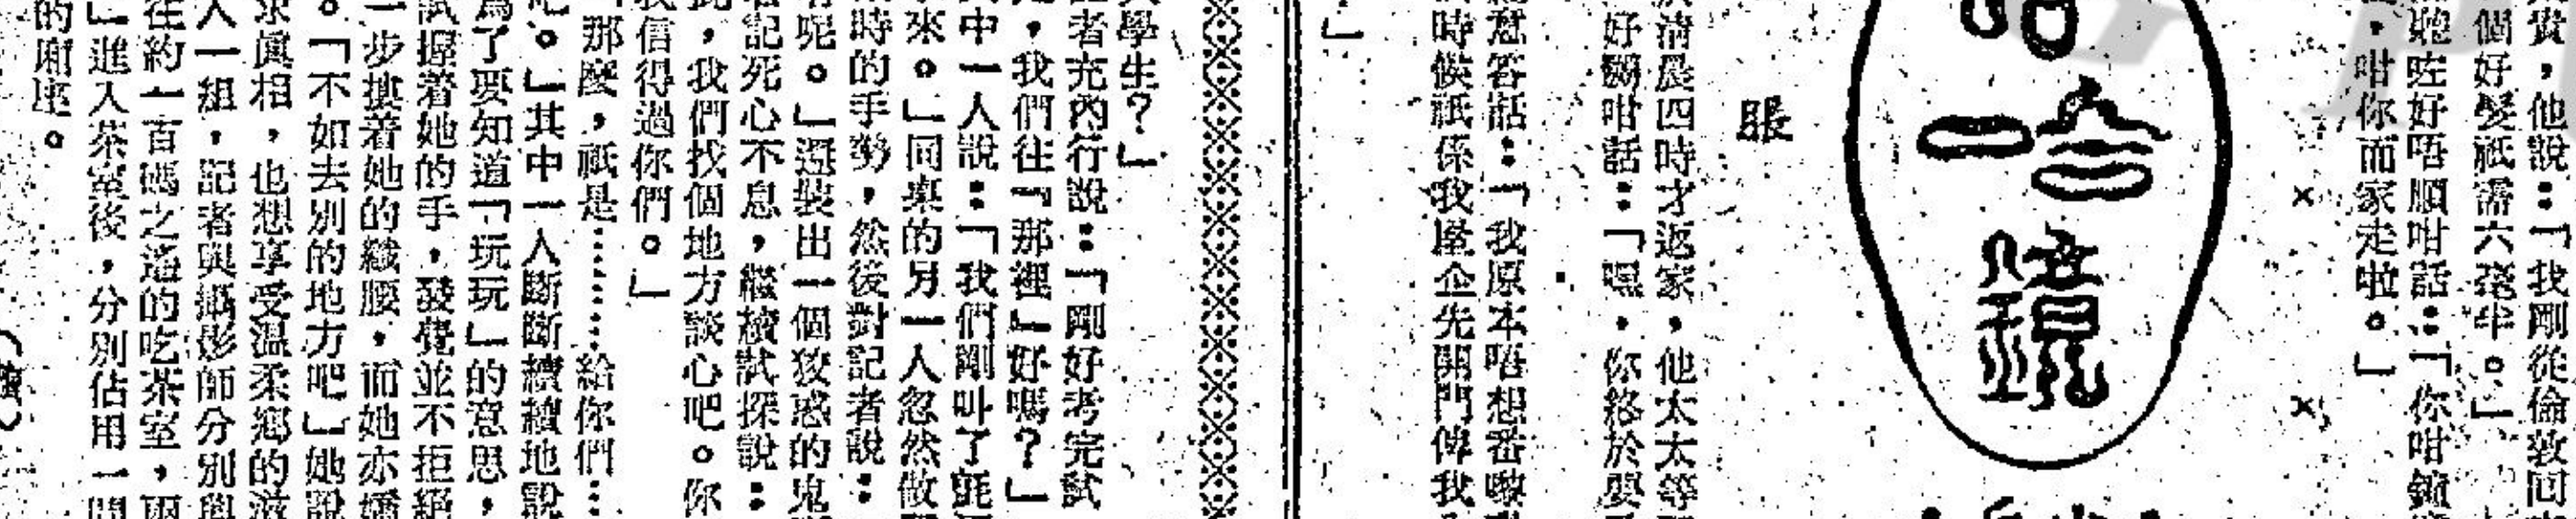 貴，他說：「我剛從倫敦回
個好髮祇需六毫半。」
聽咗好唔順咁話：「你咁鐘
，咁你而家走啦。」
×
×
一
眼
清晨四時才返家，他太太等
好嬲咁話：「嘿，你終於要
意答話：「我原本唔想番嚟
時候祇係我屋企先開門俾我
」
大學生？」
者充內行說：「剛好考完試
，我們往『那裡』好嗎？」
中一人說：「我們剛叫了
來。」同桌的另一人忽然做
時的手勢，然後對記者說：
呢。」還裝出一個狡惑的鬼
記死心不息，繼續試探說：
，我們找個地方談心吧。你
我信得過你們。」
「那麼，祇是……給你們…
吧。」其中一人斷斷續續地說
為了要知道「玩玩」的意思，
試握着她的手，發覺並不拒絕
一步摟着她的纖腰，而她亦
。「不如去別的地方吧」她說
求眞相，也想享受溫柔鄉的滋
人一組，記者與攝影師分別與
往約一百碼之遙的吃茶室，兩
」進入茶室後，分別佔用一間
的廂座。